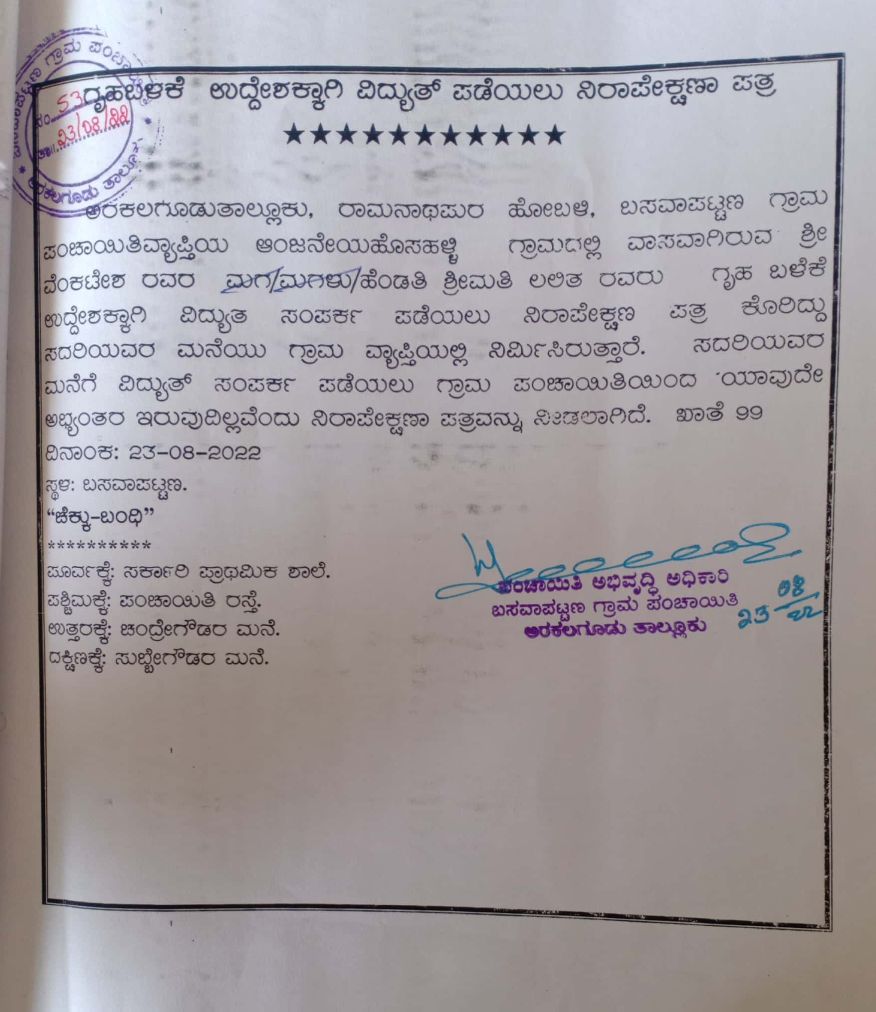 ಬಸವಾಪಟ್ಟಣ ಗ್ರಾಮ ಪಂಚಾಯಿತಿ
ನಂ. 53
ತಾ॥ 23/08/22
ಅರಕಲಗೂಡು ತಾಲ್ಲೂಕು
ಗೃಹಬಳಕೆ ಉದ್ದೇಶಕ್ಕಾಗಿ ವಿದ್ಯುತ್ ಪಡೆಯಲು ನಿರಾಪೇಕ್ಷಣಾ ಪತ್ರ
★★★★★★★★★★★
ಅರಕಲಗೂಡುತಾಲ್ಲೂಕು, ರಾಮನಾಥಪುರ ಹೋಬಳಿ, ಬಸವಾಪಟ್ಟಣ ಗ್ರಾಮ
ಪಂಚಾಯಿತಿವ್ಯಾಪ್ತಿಯ ಆಂಜನೇಯಹೊಸಹಳ್ಳಿ ಗ್ರಾಮದಲ್ಲಿ ವಾಸವಾಗಿರುವ ಶ್ರೀ
ವೆಂಕಟೇಶ ರವರ ಮಗ/ಮಗಳು/ಹೆಂಡತಿ ಶ್ರೀಮತಿ ಲಲಿತ ರವರು ಗೃಹ ಬಳೆಕೆ
ಉದ್ದೇಶಕ್ಕಾಗಿ ವಿದ್ಯುತ ಸಂಪರ್ಕ ಪಡೆಯಲು ನಿರಾಪೇಕ್ಷಣ ಪತ್ರ ಕೊರಿದ್ದು
ಸದರಿಯವರ ಮನೆಯು ಗ್ರಾಮ ವ್ಯಾಪ್ತಿಯಲ್ಲಿ ನಿರ್ಮಿಸಿರುತ್ತಾರೆ. ಸದರಿಯವರ
ಮನೆಗೆ ವಿದ್ಯುತ್ ಸಂಪರ್ಕ ಪಡೆಯಲು ಗ್ರಾಮ ಪಂಚಾಯಿತಿಯಿಂದ ಯಾವುದೇ
ಅಭ್ಯಂತರ ಇರುವುದಿಲ್ಲವೆಂದು ನಿರಾಪೇಕ್ಷಣಾ ಪತ್ರವನ್ನು ನೀಡಲಾಗಿದೆ. ಖಾತೆ 99
ದಿನಾಂಕ: 23-08-2022
ಸ್ಥಳ: ಬಸವಾಪಟ್ಟಣ.
“ಚೆಕ್ಕು-ಬಂಧಿ”
**********
ಪೂರ್ವಕ್ಕೆ: ಸರ್ಕಾರಿ ಪ್ರಾಥಮಿಕ ಶಾಲೆ.
ಪಶ್ಚಿಮಕ್ಕೆ: ಪಂಚಾಯಿತಿ ರಸ್ತೆ.
ಉತ್ತರಕ್ಕೆ: ಚಂದ್ರೇಗೌಡರ ಮನೆ.
ದಕ್ಷಿಣಕ್ಕೆ: ಸುಬ್ಬೇಗೌಡರ ಮನೆ.
ಪಂಚಾಯಿತಿ ಅಭಿವೃದ್ಧಿ ಅಧಿಕಾರಿ
ಬಸವಾಪಟ್ಟಣ ಗ್ರಾಮ ಪಂಚಾಯಿತಿ
ಅರಕಲಗೂಡು ತಾಲ್ಲೂಕು
23 08/22